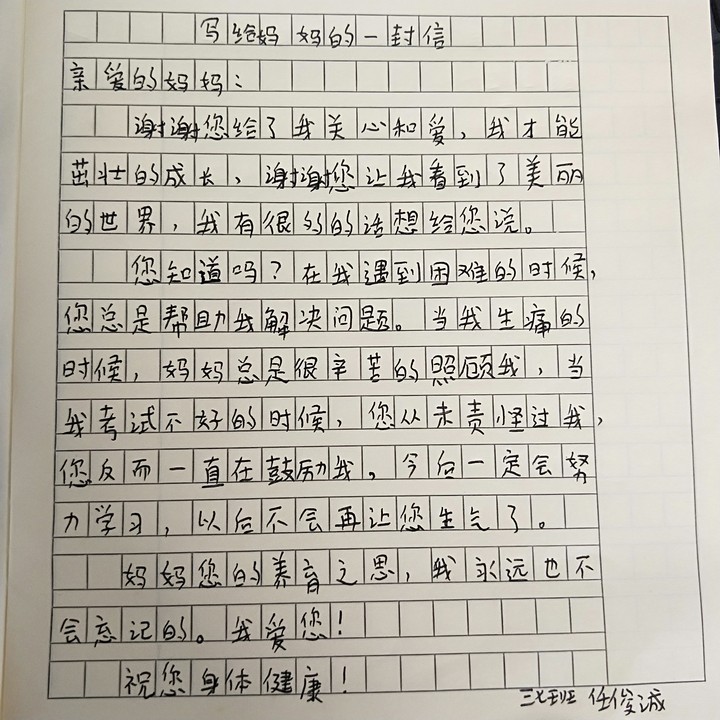 写给妈妈的一封信
亲爱的妈妈：
谢谢您给了我关心和爱，我才能
茁壮的成长，谢谢您让我看到了美丽
的世界，我有很多的话想给您说。
您知道吗？在我遇到困难的时候，
您总是帮助我解决问题。当我生痛的
时候，妈妈总是很辛苦的照顾我，当
我考试不好的时候，您从未责怪过我，
您反而一直在鼓励我。今后一定会努
力学习，以后不会再让您生气了。
妈妈您的养育之恩，我永远也不
会忘记的。我爱您！
祝您身体健康！
三七班 任俊诚